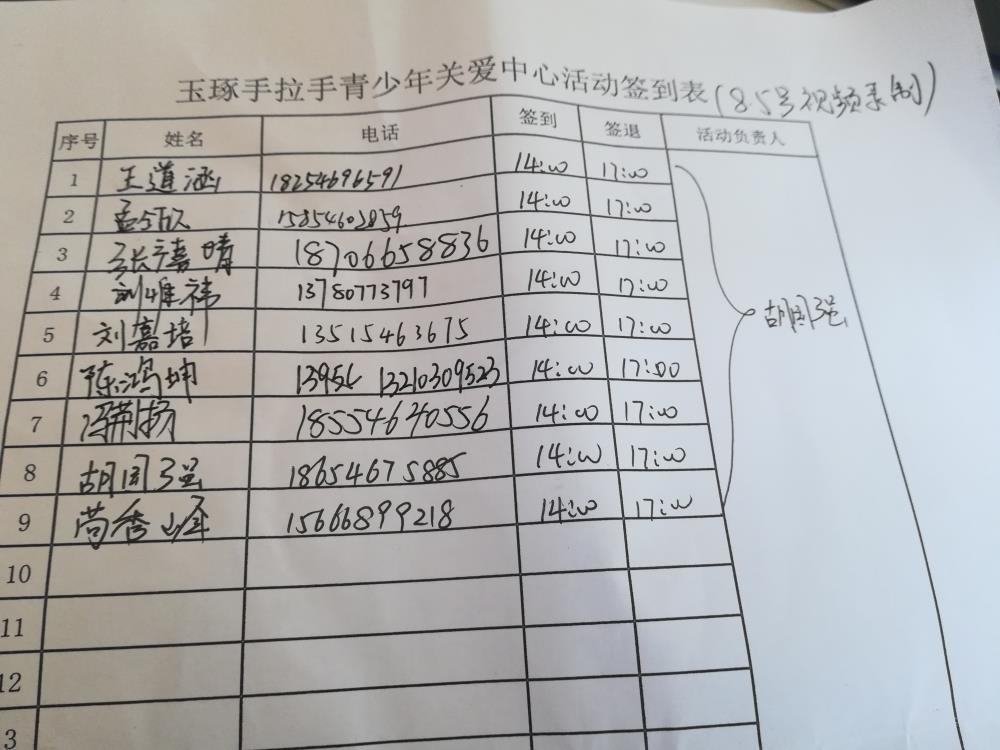 玉琢手拉手青少年关爱中心活动签到表(8.5号视频录制)
序号 姓名 电话 签到 签退 活动负责人
1 王道涵 18254696591 14:00 17:00
2 孟 15854602859 14:00 17:00
3 张嘉晴 18706658836 14:00 17:00
4 刘唯祎 13780773797 14:00 17:00
5 刘嘉培 13515463675 14:00 17:00 胡国强
6 陈鸿坤 1395 13210309523 14:00 17:00
7 冯荆扬 18554640556 14:00 17:00
8 胡国强 18654675885 14:00 17:00
9 苘秀峰 15666899218 14:00 17:00
10
11
12
3